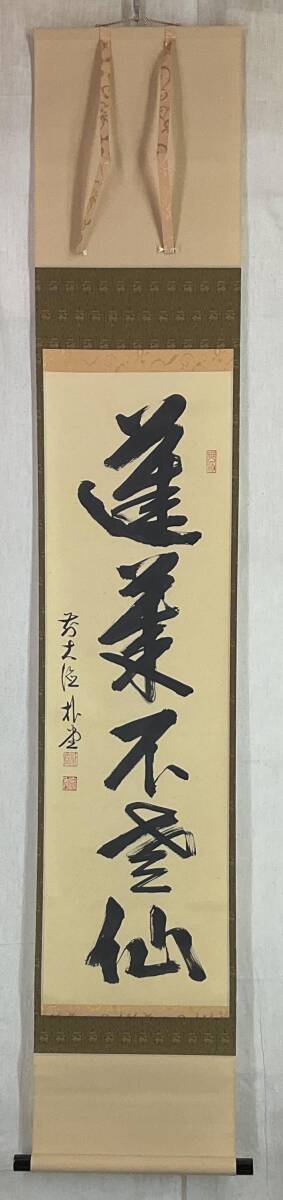 蓬莱不老仙
前大徳朴堂